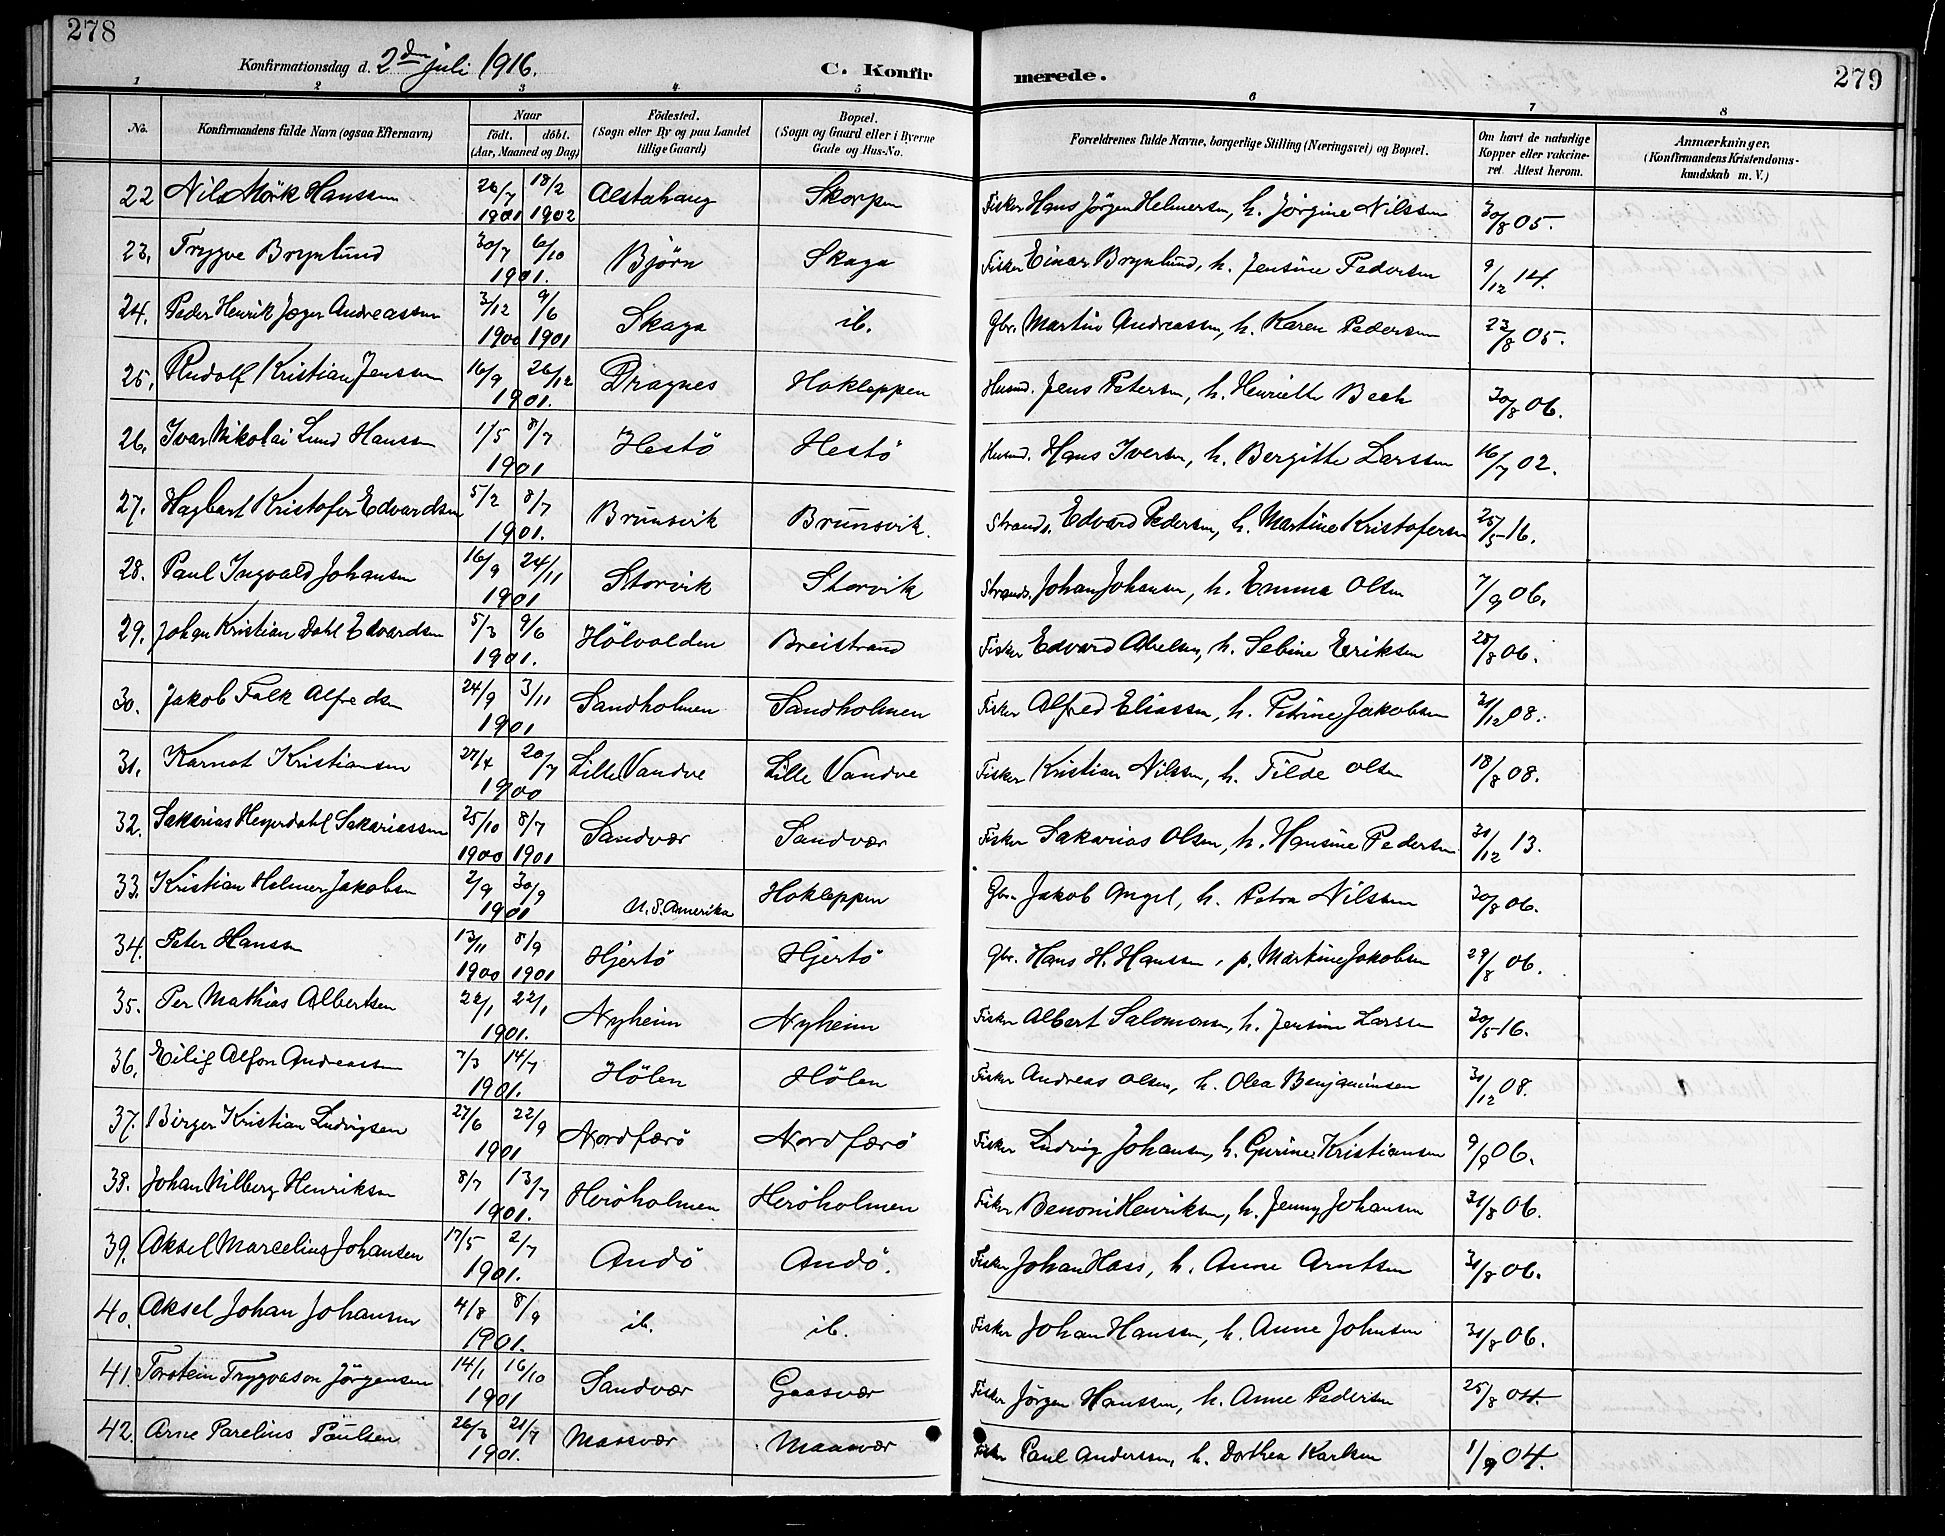 278
Konfirmationsdag d. 2den juli 1916.
C. Konfirmerede.
279
1 2 3 4 5 6 7 8
No. | Konfirmandens fulde Navn (ogsaa Efternavn) | Naar födt. döbt. (Aar, Maaned og Dag) | Födested. (Sogn eller By og paa Landet tillige Gaard) | Bopæl. (Sogn og Gaard eller i Byerne Gade og Hus-No. | Forældrenes fulde Navne, borgerlige Stilling (Næringsvei) og Bopæl. | Om havt de naturlige Kopper eller vakcineret. Attest herom. | Anmærkninger. (Konfirmandens Kristendomskundskab m. V.)
22 Nils Mörk Hanssen 26/7 1901 18/2 1902 Alstahaug Skorpen Fisker Hans Jörgen Helmersen, h. Jörgine Nilssen 30/8 05.
23. Trygve Brynlund 30/7 6/10 1901. Björn Skaga Fisker Einar Brynlund, h. Jensine Pedersen 9/12 14.
24. Peder Henrik Jæger Andreassen 3/12 1900 9/6 1901 Skaga ib. Gbr. Martin Andreassen, h. Karen Pedersen 23/8 05.
25. Rudolf Kristian Jenssen 16/9 26/12 1901. Dragnes Hokleppen Husmd. Jens Petersen, h. Henriette Bech 30/8 06.
26. Ivar Nikolai Lund Hanssen 1/5 8/7 1901 Hestö Hestö Husmd. Hans Iversen, h. Bergitte Larssen 16/7 02.
27. Hagbart Kristofer Edvardsen 5/2 8/7 1901. Brunsvik Brunsvik. Strands. Edvard Pedersen, h. Martine Kristofersen 25/5 16.
28. Paul Ingvald Johansen 16/9 24/11 1901 Storvik Storvik Strands. Johan Johansen, h. Emma Olsen 7/9 06.
29. Johan Kristian Dahl Edvardsen 5/3 9/6 1901. Hölvalden Breistrand Fisker Edvard Abelsen, h. Sebine Eriksen 28/8 06.
30. Jakob Falk Alfredsen 24/9 3/11 1901 Sandholmen Sandholmen Fisker Alfred Eliassen, h. Petrine Jakobsen 31/12 08.
31. Karnot Kristiansen 27/4 20/7 1900 Lille Vandve Lille Vandve Fisker Kristian Nilssen, h. Tilde Olsen 18/8 08.
32. Sakarias Heyerdahl Sakariassen 25/10 1900 8/7 1901 Sandvær Sandvær Fisker Sakarias Olsen, h. Hansine Pedersen 31/12 13.
33. Kristian Helmer Jakobsen 2/9 30/9 1901 U.S. Amerika Hokleppen Gbr. Jakob Angel, h. Petra Nilssen 30/8 06.
34. Peter Hanssen 13/11 1900 8/9 1901 Hjertö Hjertö Gbr. Hans H. Hanssen, p. Martine Jakobsen 29/8 06.
35. Per Mathias Albertsen 22/1 22/1 1901. Nyheim Nyheim Fisker Albert Salomonsen, h. Jensine Larssen 30/5 16.
36. Eilif Alfon Andreassen 7/3 14/7 1901. Hölen Hölen Fisker Andreas Olsen, h. Olea Benjaminsen 31/12 08.
37. Birger Kristian Ludvigsen 27/6 22/9 1901 Nordfærö Nordfærö Fisker Ludvig Johansen, h. Gurine Kristiansen 9/9 06.
38. Johan Milberg Henriksen 8/7 13/7 1901. Heröholmen Heröholmen Fisker Benoni Henriksen, h. Jenny Johansen 31/8 06.
39. Aksel Marcelius Johansen 17/5 2/7 1901. Andö Andö. Fisker Johan Hass, h. Anne Arntsen 31/8 06.
40. Aksel Johan Johansen 4/8 8/9 1901. ib. ib. Fisker Johan Hanssen, h. Anne Johnsen 31/8 06.
41. Torstein Trygvason Jörgensen 14/1 16/10 1901 Sandvær Gaasvær Fisker Jörgen Hanssen, h. Anne Pedersen 25/8 04.
42. Arne Parelius Paulsen 26/3 21/7 1901. Maasvær Maasvær Fisker Paul Anderssen, h. Dorthea Karlsen 1/9 04.